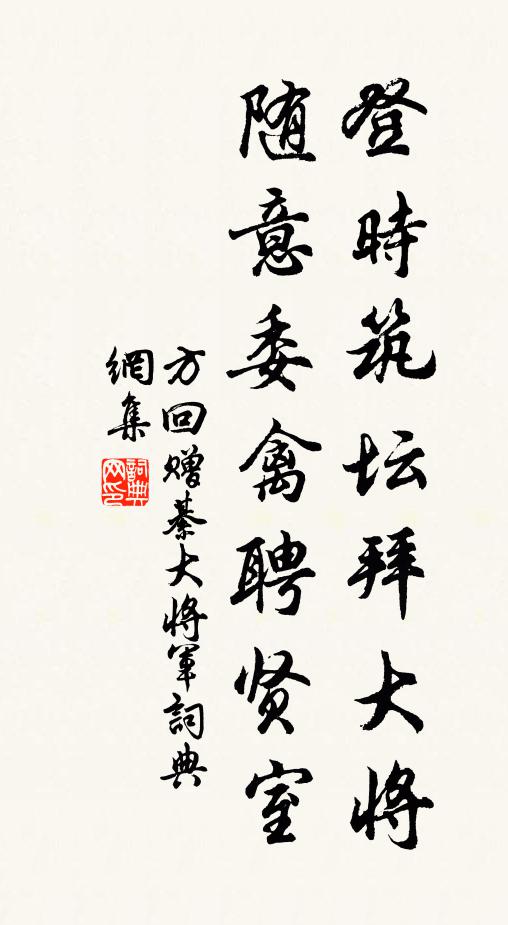 登時筑坛拜大將
随意委禽聘贤室
方回赠綦大將軍詞典
網集
詞典網印